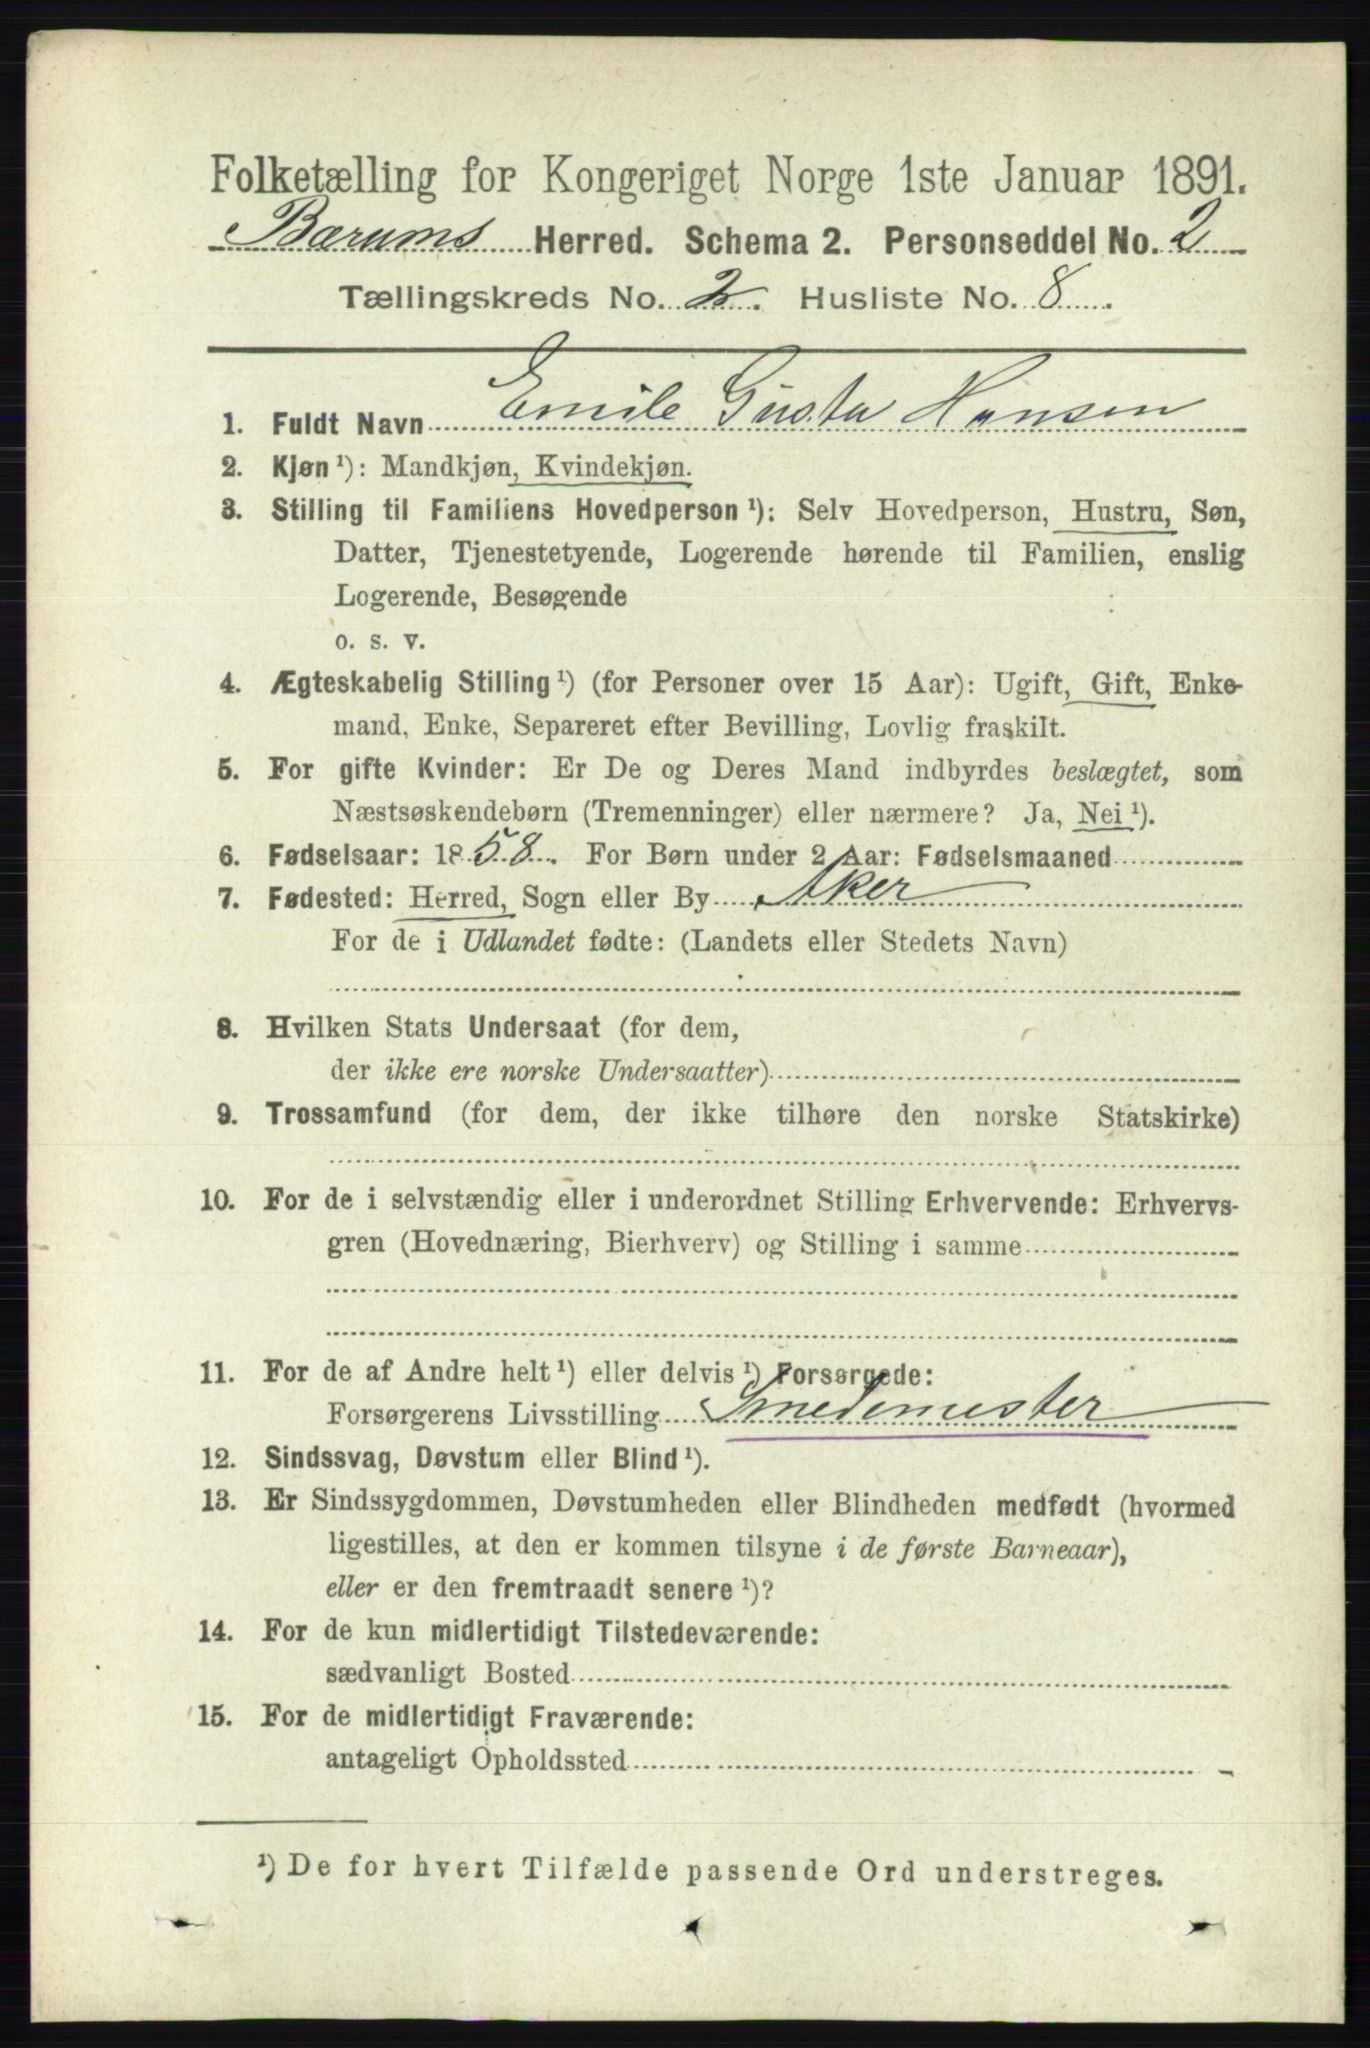 Folketælling for Kongeriget Norge 1ste Januar 1891.
Bærums Herred. Schema 2. Personseddel No. 2
Tællingskreds No. 2. Husliste No. 8.
1. Fuldt Navn Emile Gusta Hansen
2. Kjøn ¹): Mandkjøn, Kvindekjøn.
3. Stilling til Familiens Hovedperson ¹): Selv Hovedperson, Hustru, Søn,
Datter, Tjenestetyende, Logerende hørende til Familien, enslig
Logerende, Besøgende
o. s. v.
4. Ægteskabelig Stilling ¹) (for Personer over 15 Aar): Ugift, Gift, Enke-
mand, Enke, Separeret efter Bevilling, Lovlig fraskilt.
5. For gifte Kvinder: Er De og Deres Mand indbyrdes beslægtet, som
Næstsøskendebørn (Tremenninger) eller nærmere? Ja, Nei ¹).
6. Fødselsaar: 1858. For Børn under 2 Aar: Fødselsmaaned
7. Fødested: Herred, Sogn eller By Aker
For de i Udlandet fødte: (Landets eller Stedets Navn)
8. Hvilken Stats Undersaat (for dem,
der ikke ere norske Undersaatter)
9. Trossamfund (for dem, der ikke tilhøre den norske Statskirke)
10. For de i selvstændig eller i underordnet Stilling Erhvervende: Erhvervs-
gren (Hovednæring, Bierhverv) og Stilling i samme
11. For de af Andre helt ¹) eller delvis ¹) Forsørgede:
Forsørgerens Livsstilling Smedemester
12. Sindssvag, Døvstum eller Blind ¹).
13. Er Sindssygdommen, Døvstumheden eller Blindheden medfødt (hvormed
ligestilles, at den er kommen tilsyne i de første Barneaar),
eller er den fremtraadt senere ¹)?
14. For de kun midlertidigt Tilstedeværende:
sædvanligt Bosted
15. For de midlertidigt Fraværende:
antageligt Opholdssted
¹) De for hvert Tilfælde passende Ord understreges.